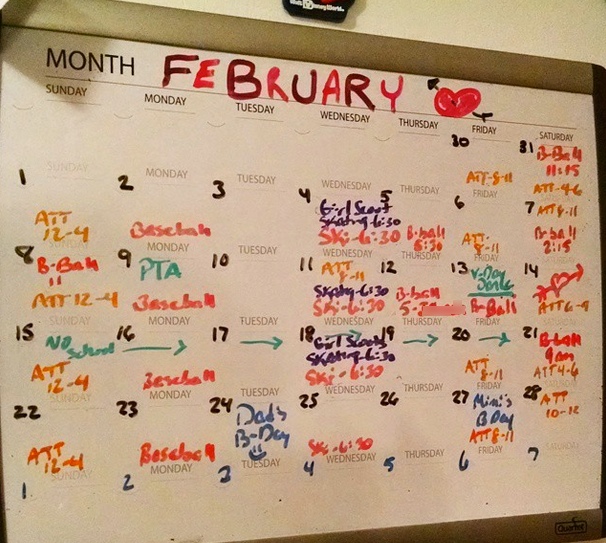 MONTH FEBRUARY
SUNDAY MONDAY TUESDAY WEDNESDAY THURSDAY FRIDAY SATURDAY
30
ATT-8-11
31
B-Ball
11:15
ATT-4-6
SUNDAY MONDAY TUESDAY WEDNESDAY THURSDAY FRIDAY
1
ATT
12-4
2
Baseball
3
4
Girl Scout
Skating-6:30
Ski-6:30
5
B-ball
5:30
6
ATT
8-11
7
ATT
8-11
B-ball
2:15
MONDAY TUESDAY WEDNESDAY THURSDAY FRIDAY
8
B-Ball
11
ATT 12-4
9
PTA
Baseball
10
11
ATT
8-11
Skating-6:30
Ski-6:30
12
B-ball
13
V-Day
B-Ball
14
SUNDAY MONDAY TUESDAY WEDNESDAY THURSDAY FRIDAY
15
No
School
ATT
12-4
16
Baseball
17
18
Girl Scouts
Skating-6:30
Ski-6:30
19
20
ATT
8-11
21
B-ball
9am
ATT 4-6
SUNDAY MONDAY TUESDAY WEDNESDAY THURSDAY FRIDAY SATURDAY
22
ATT
12-4
23
Baseball
24
Dad's
B-Day
25
Ski-6:30
26
27
Mimi's
B Day
ATT 8-11
28
ATT
10-12
SUNDAY MONDAY TUESDAY WEDNESDAY THURSDAY FRIDAY SATURDAY
1 2 3 4 5 6 7
Quartet